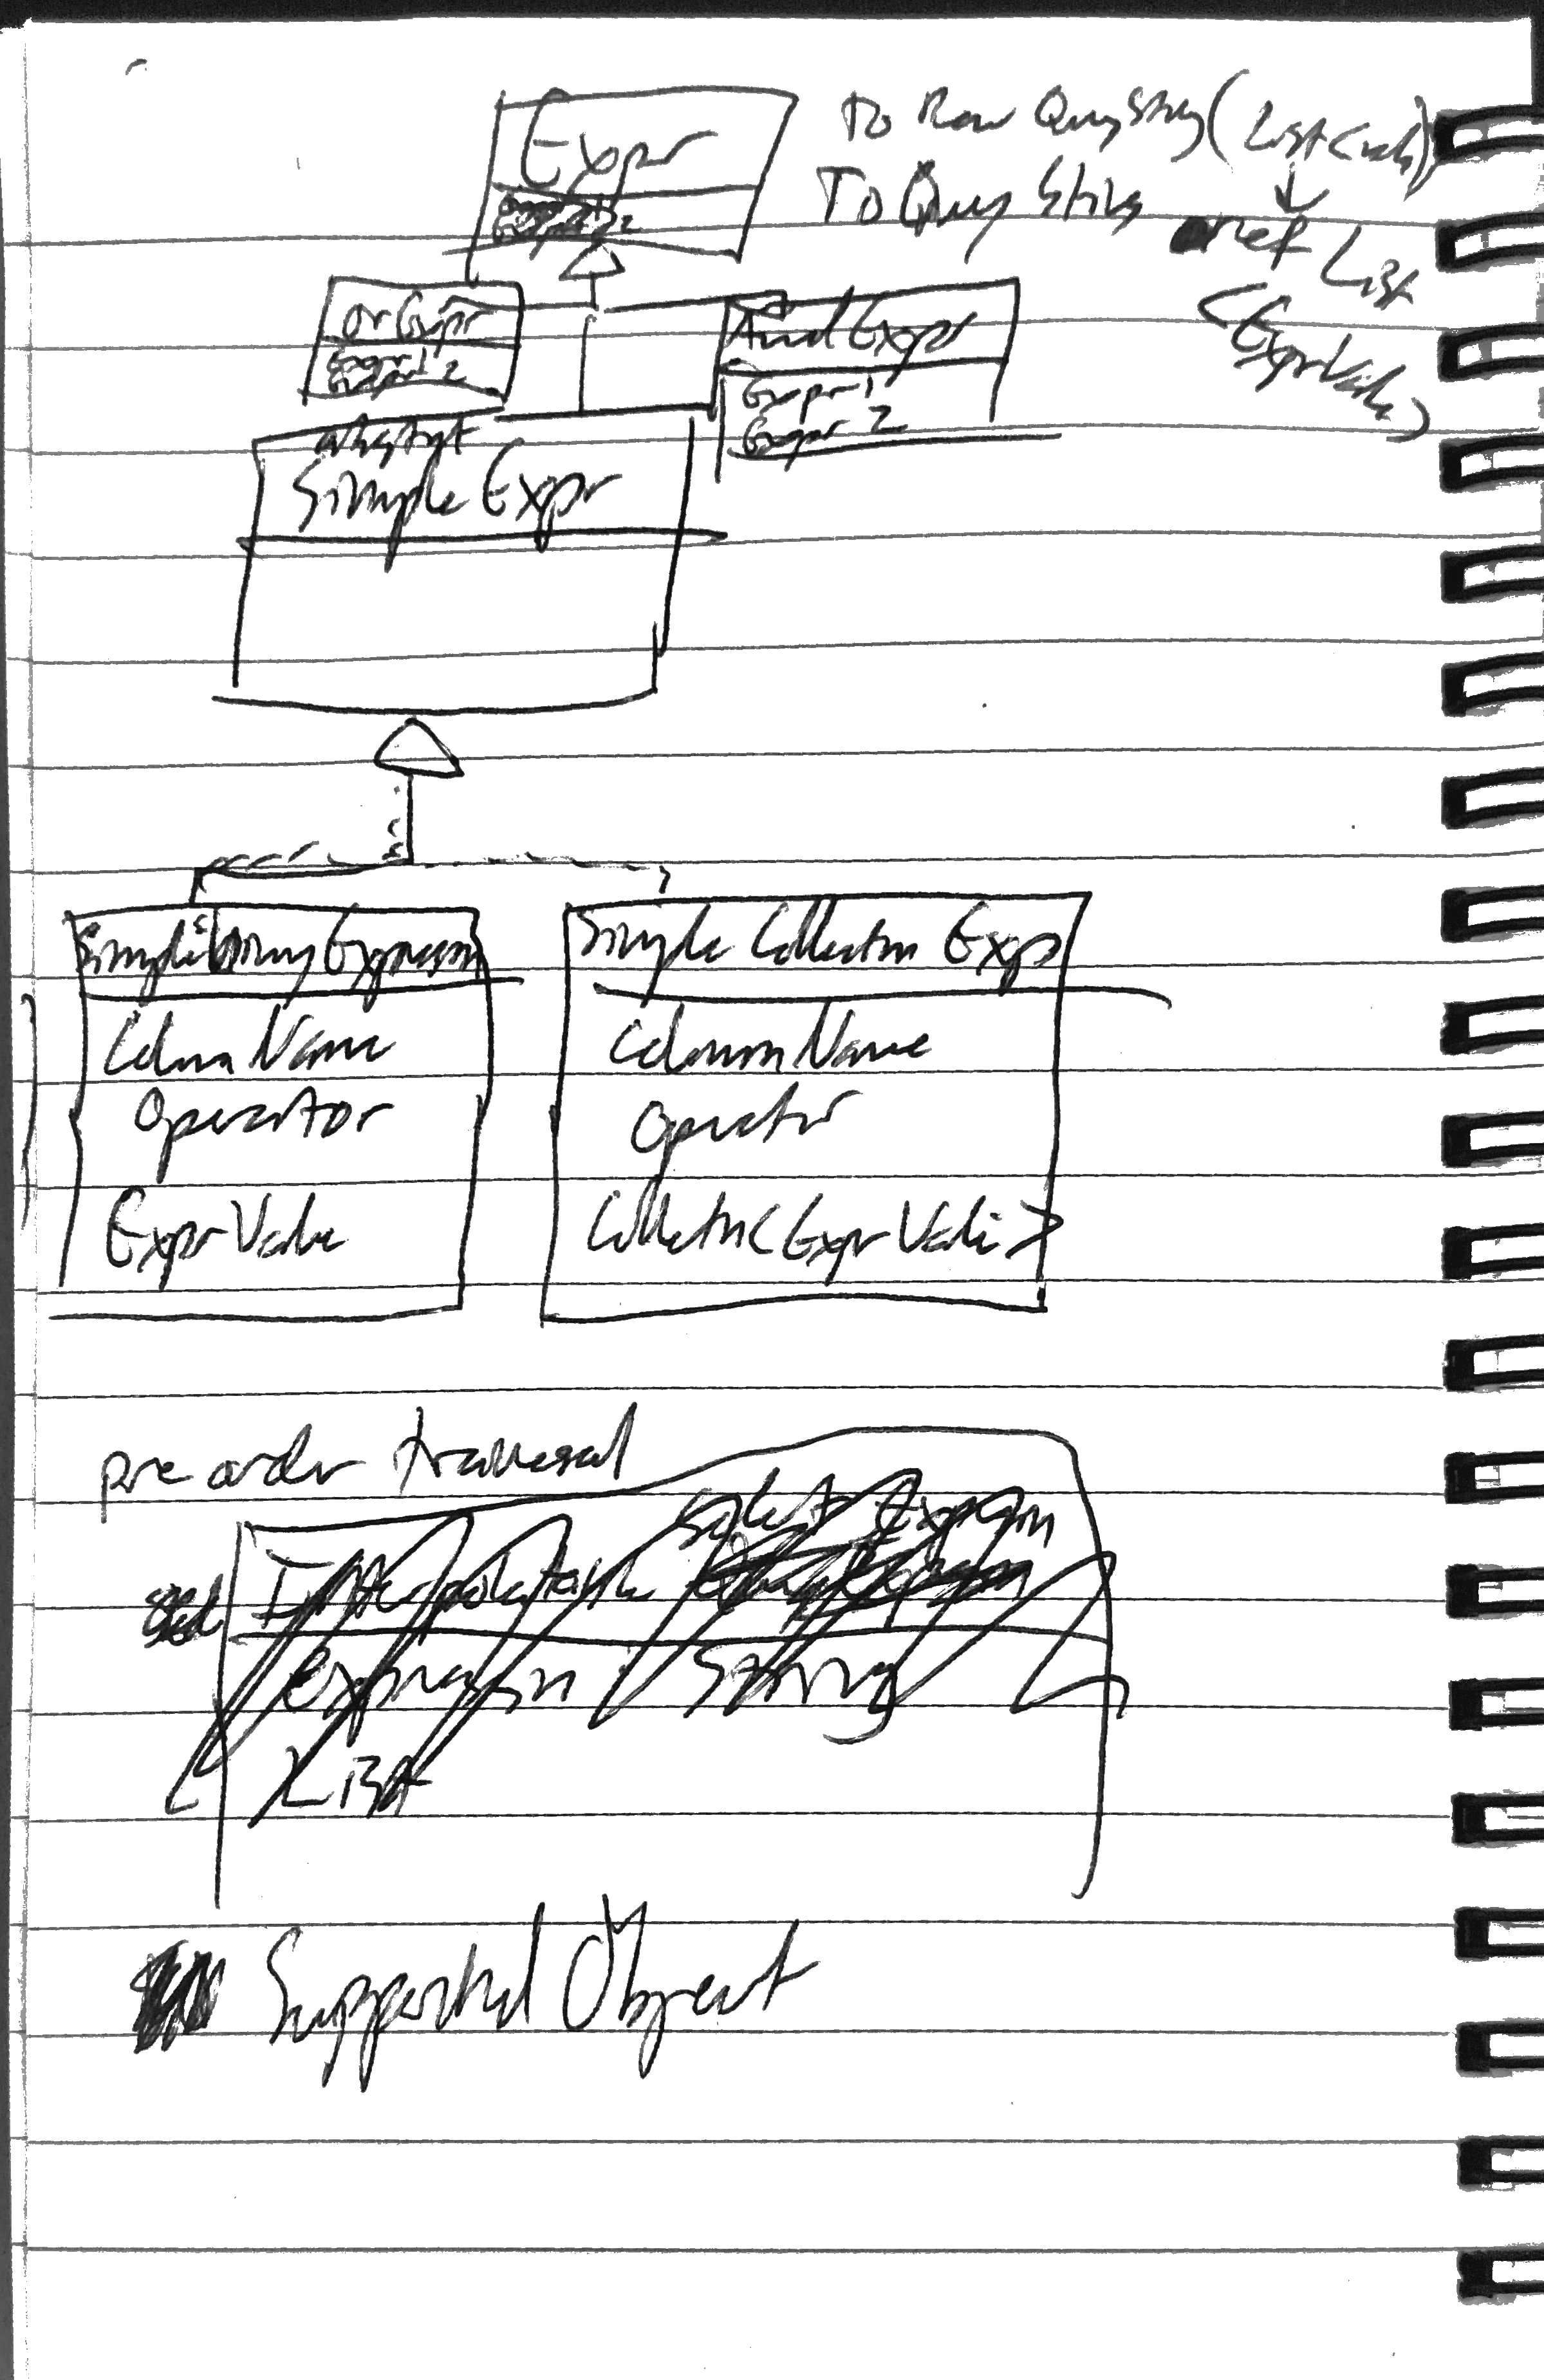 Expr
To Raw QueryString (List<vals>)
To Query String
or ref List
<ExprValue>
orExpr
Expr 1
Expr 2
AndExpr
Expr 1
Expr 2
abstract
Simple Expr
Simple Binary Expression
Column Name
Operator
ExprValue
Simple Collection Expr
ColumnName
Operator
Collection<ExprValue>
pre order traversal
Interpolatable Select Expression
Expression String
List
Supported Object